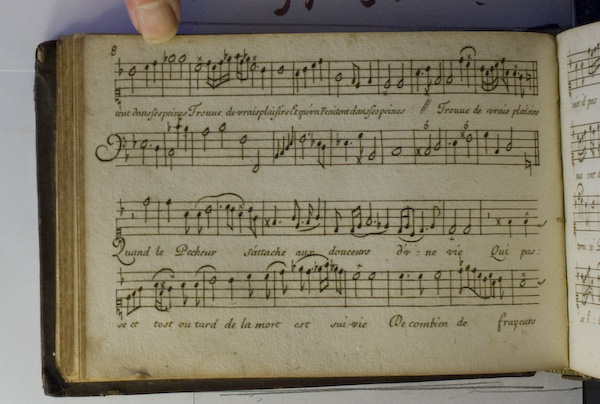 8
tent dans ses peines Trouue de vrais plaisirs Et qu'vn Penitent dans ses peines Trouue de vrais plaisirs
6 6
Quand le Pecheur s'attache aux douceurs d'v-ne vie Qui pas:
se et tost ou tard de la mort est sui-vie De combien de frayeurs